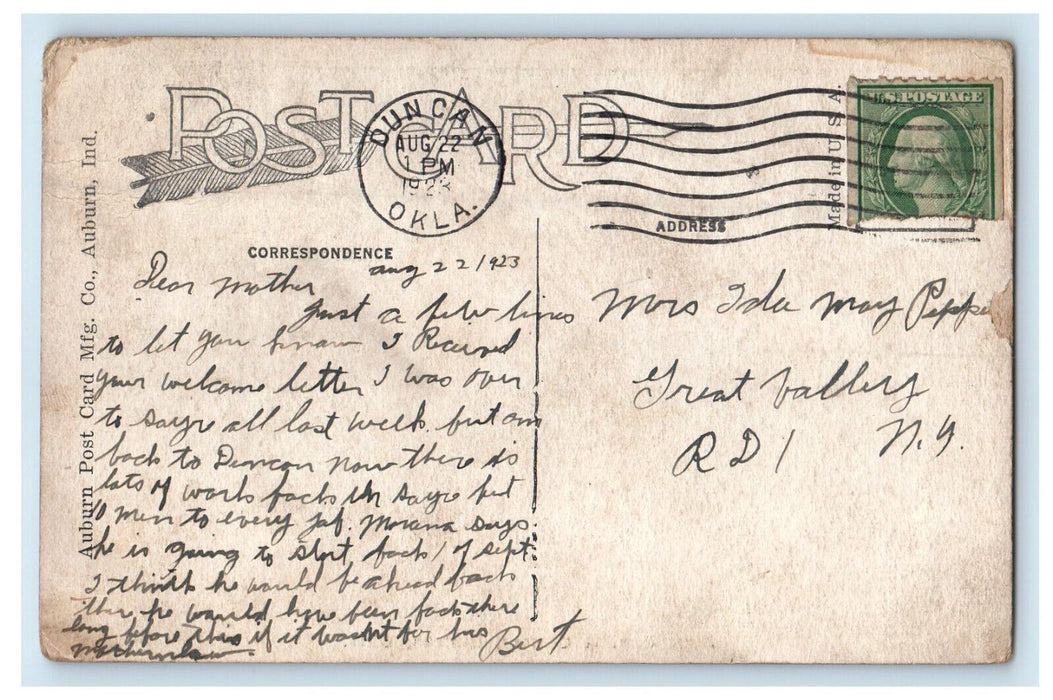 POST CARD
DUNCAN
AUG 22
1 PM
192
OKLA.
U.S. POSTAGE
Made in U. S. A.
ADDRESS
CORRESPONDENCE
Auburn Post Card Mfg. Co., Auburn, Ind.
Aug 22 1923
Dear Mother
Just a few lines
to let you know I Received
your welcome letter I was over
to Sayre all last week but am
back to Duncan now there is
lots of work back in Sayre but
10 men to every job. says
he is going to start back 1 of Sept.
I think he would be ahead back
there he would have been back there
long before this if it wasent for his
Motherinlaw
Bert
Mrs Ida May
Great Valley
R D 1 N.Y.